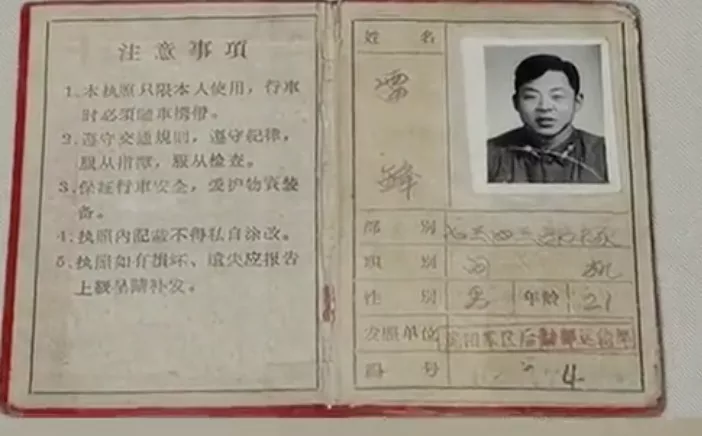 注意事項
1.本执照只限本人使用，行車
时必須隨車携帶。
2.遵守交通規則，遵守紀律，
服从指揮，服从檢查。
3.保証行車安全，爱护物資装
备。
4.执照內記載不得私自涂改。
5.执照如有損坏、遺失应报告
上級呈請补发。
姓 名
雷
鋒
部 別
职 別
司 机
性 別 男 年龄 21
发照单位 沈阳軍区后勤部运輸部
号
4